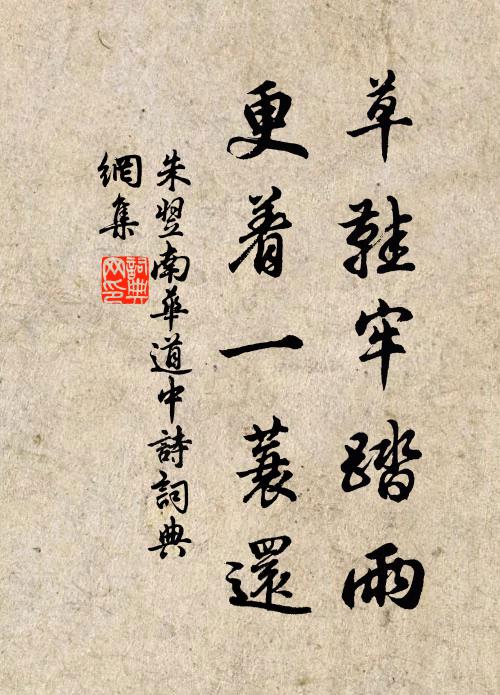 草鞋牢踏雨
更着一蓑還
朱翌南華道中詩詞典
網集
詞典
网印